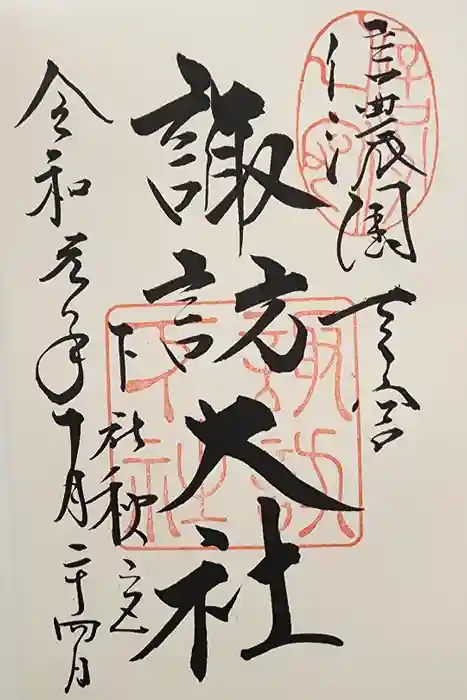 信濃國一宮
諏訪大社
下社秋宮
令和元年十月二十四日
諏訪
下社